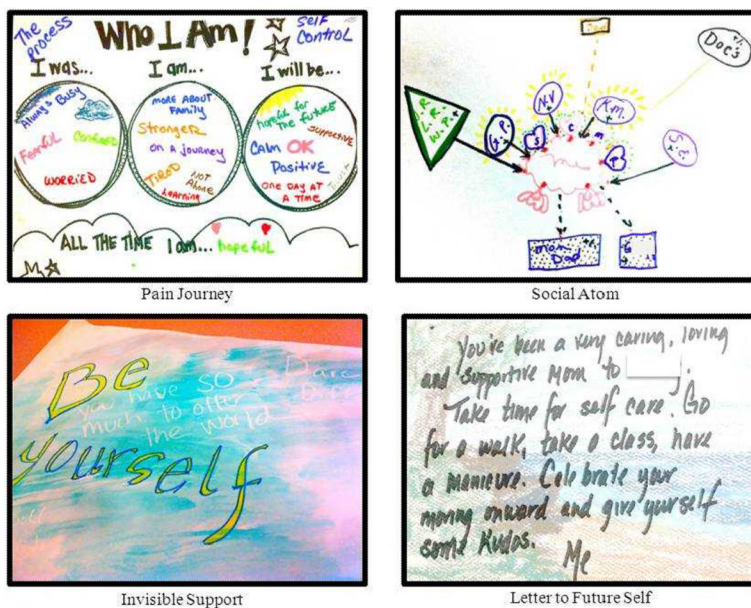 The process
Who I Am!
SELF CONTROL
I was...
I am...
I will be...
Always Busy
FEARful
CONFUSED
WORRIED
MORE ABOUT FAMILY
STRONGER
ON A JOURNEY
TIRED
NOT Alone
Learning
hopeful for the future
SUPPORTIVE
CALM
OK
Positive
TOUGH
ONE DAY AT A TIME
ALL THE TIME I am... hopeful
Pain Journey
DOC'S
N.V
K.M.
S
C
m
mom
Dad
Social Atom
Be
yourself
you have SO
much to offer
the world
Invisible Support
You've been a very caring, loving
and supportive Mom to
Take time for self care. Go
for a walk, take a class, have
a manicure. Celebrate your
moving onward and give yourself
some Kudos.
Me
Letter to Future Self